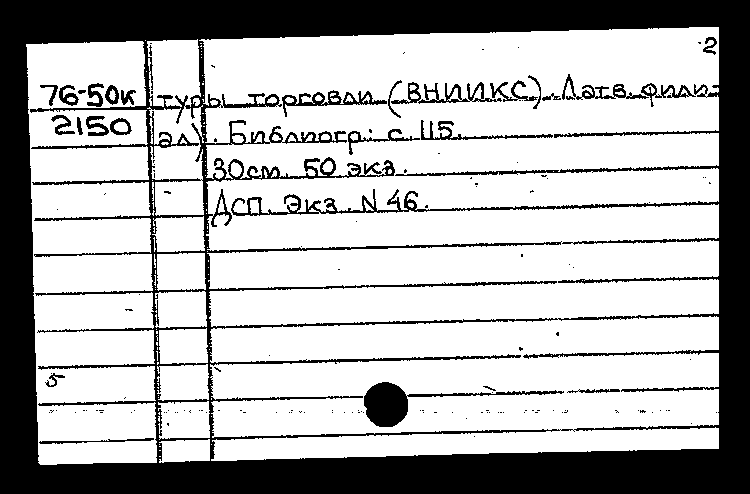 2
76-50к туры торговли (ВНИИКС). Латв. фили-
2150 ал). Библиогр: с. 115.
30см. 50 экз.
ДСП. Экз. N 46.
5